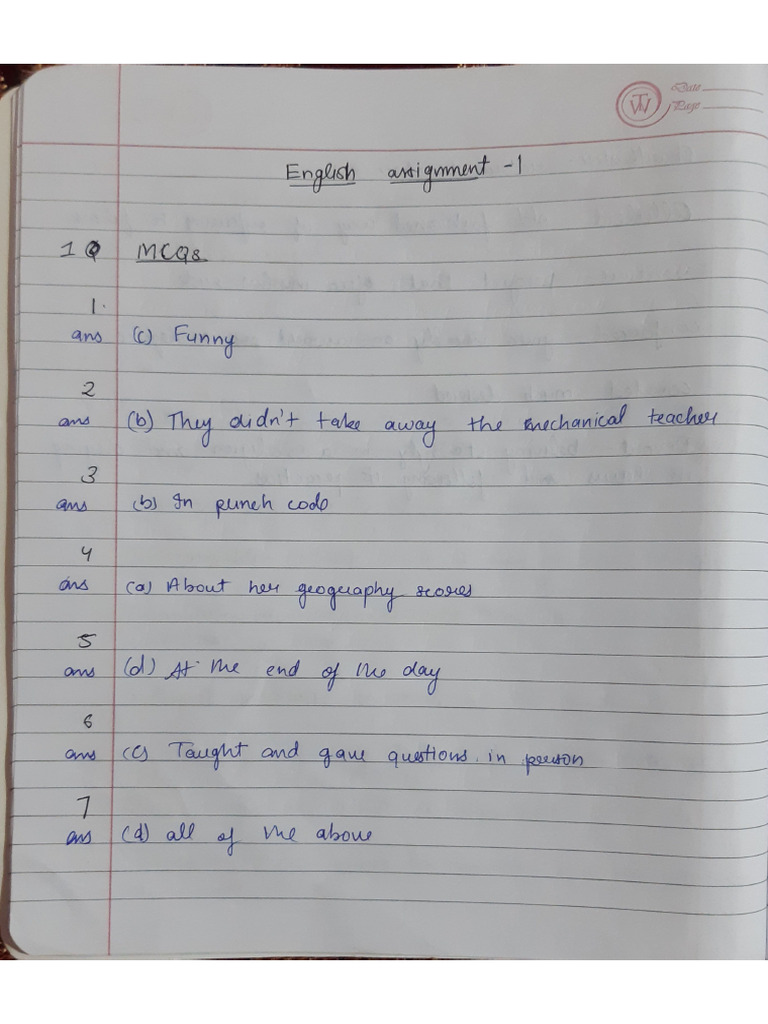 Date
Page
English assignment -1
1Q MCQs
1.
ans (c) Funny
2
ans (b) They didn't take away the mechanical teacher
3
ans (b) In punch code
4
ans (a) About her geography scores
5
ans (d) At the end of the day
6
ans (c) Taught and gave questions in person
7
ans (d) all of the above